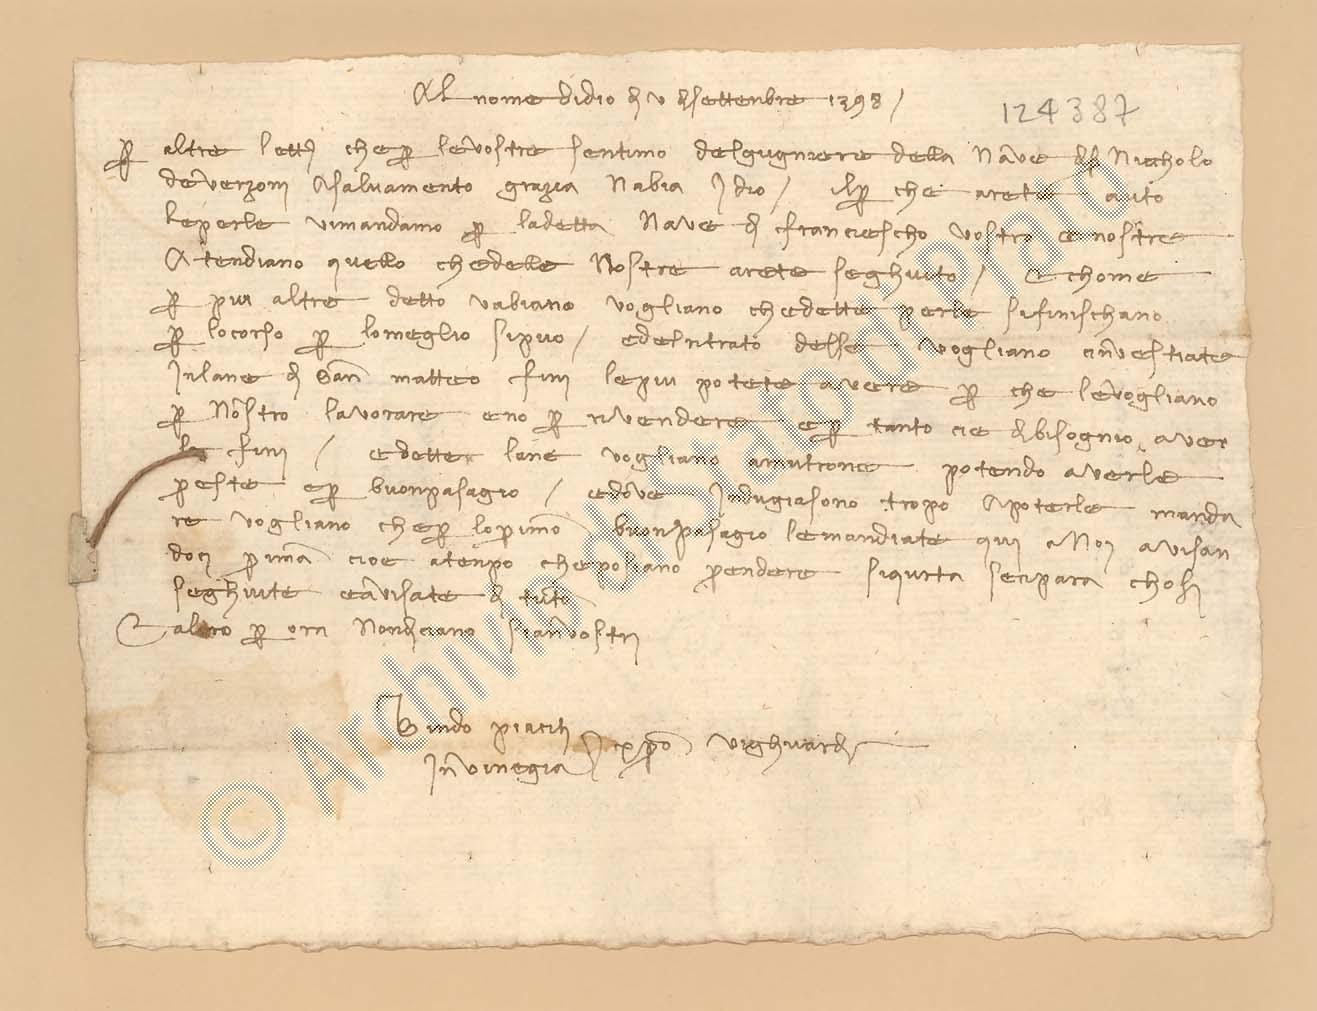 Al nome didio di v di settenbre 1398 /
124387
per altre lettere che per le vostre sentimo del giugniere della nave di ser Nicholo
de verzoni a salvamento grazia nabia Idio / il perche arete auto
le perle vi mandamo per la detta nave di francescho vostro e nostre
Atendiano quello che delle nostre arete seghuito / E chome
per piu altre detto vabiano vogliano che dette perle si finischano
per lo corso per lo meglio si puo / e del ritrato desse vogliano cinvestiate
in lane di San matteo fini le piu potete avere per che le vogliano
per nostro lavorare e no per rivendere e per tanto cie di bisognio aver
le fini / e dette lane vogliano potendo averle
preste e per buon pasagio / e dove indugiasono tropo a poterle manda
re vogliano che per lo primo buon pasagio le mandiate qui a noi avisan
doci prima cioe a tenpo che posiano prendere siqurta se ci para chosi
seghuite e avisate di tutto
E altro per ora non diciano sian vostri
Bindo piaciti
in vinegia